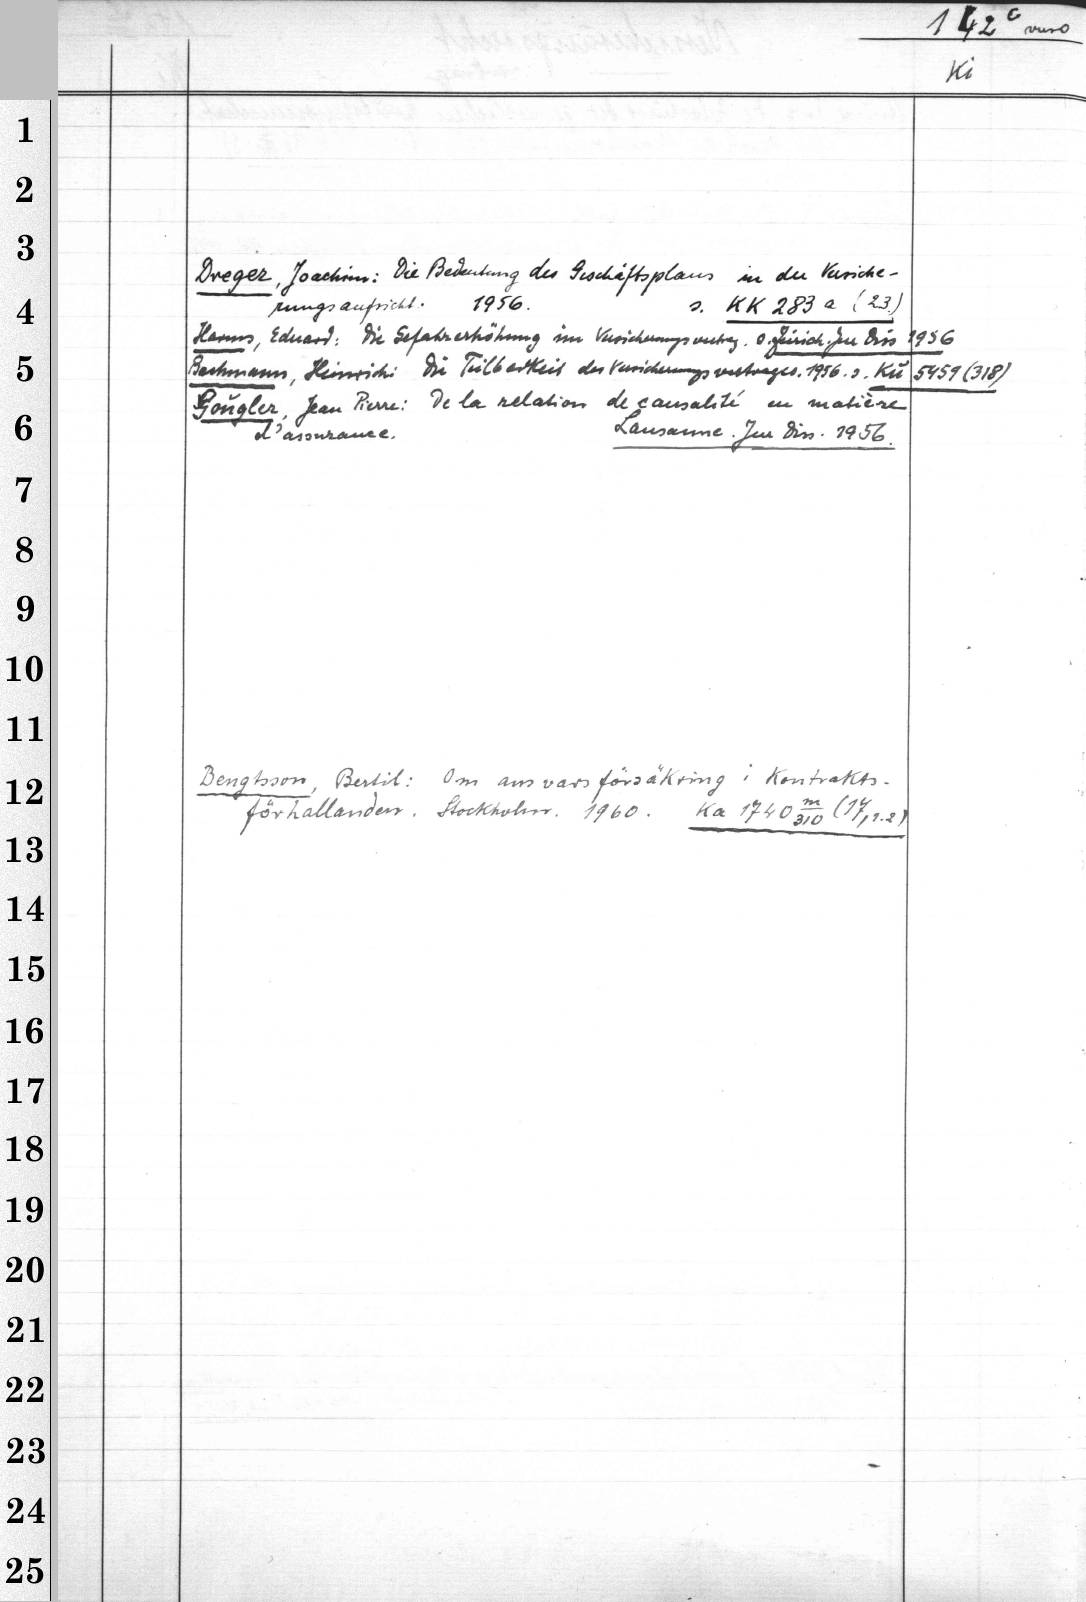 142 c verso
Ki
1
2
3
Dreger, Joachim: Die Bedeutung des Geschäftsplans in der Versiche-
rungsaufsicht. 1956. s. KK 283 a (23)
4
Harms, Eduard: Die Gefahrerhöhung im Versicherungsvertrag. s. Zürich. Jur. Diss 1956
5
Bachmann, Heinrich: Die Teilbarkeit des Versicherungsvertrages. 1956. s. Kü 5459 (318)
Gougler, Jean Pierre: De la relation de causalité en matière
6
d'assurance. Lausanne. Jur. Diss. 1956.
7
8
9
10
11
Bengtsson, Bertil: Om ansvarsförsäkring i Kontrakts-
12
förhallanden. Stockholm. 1960. Ka 1740 m/310 (17,1.2)
13
14
15
16
17
18
19
20
21
22
23
24
25